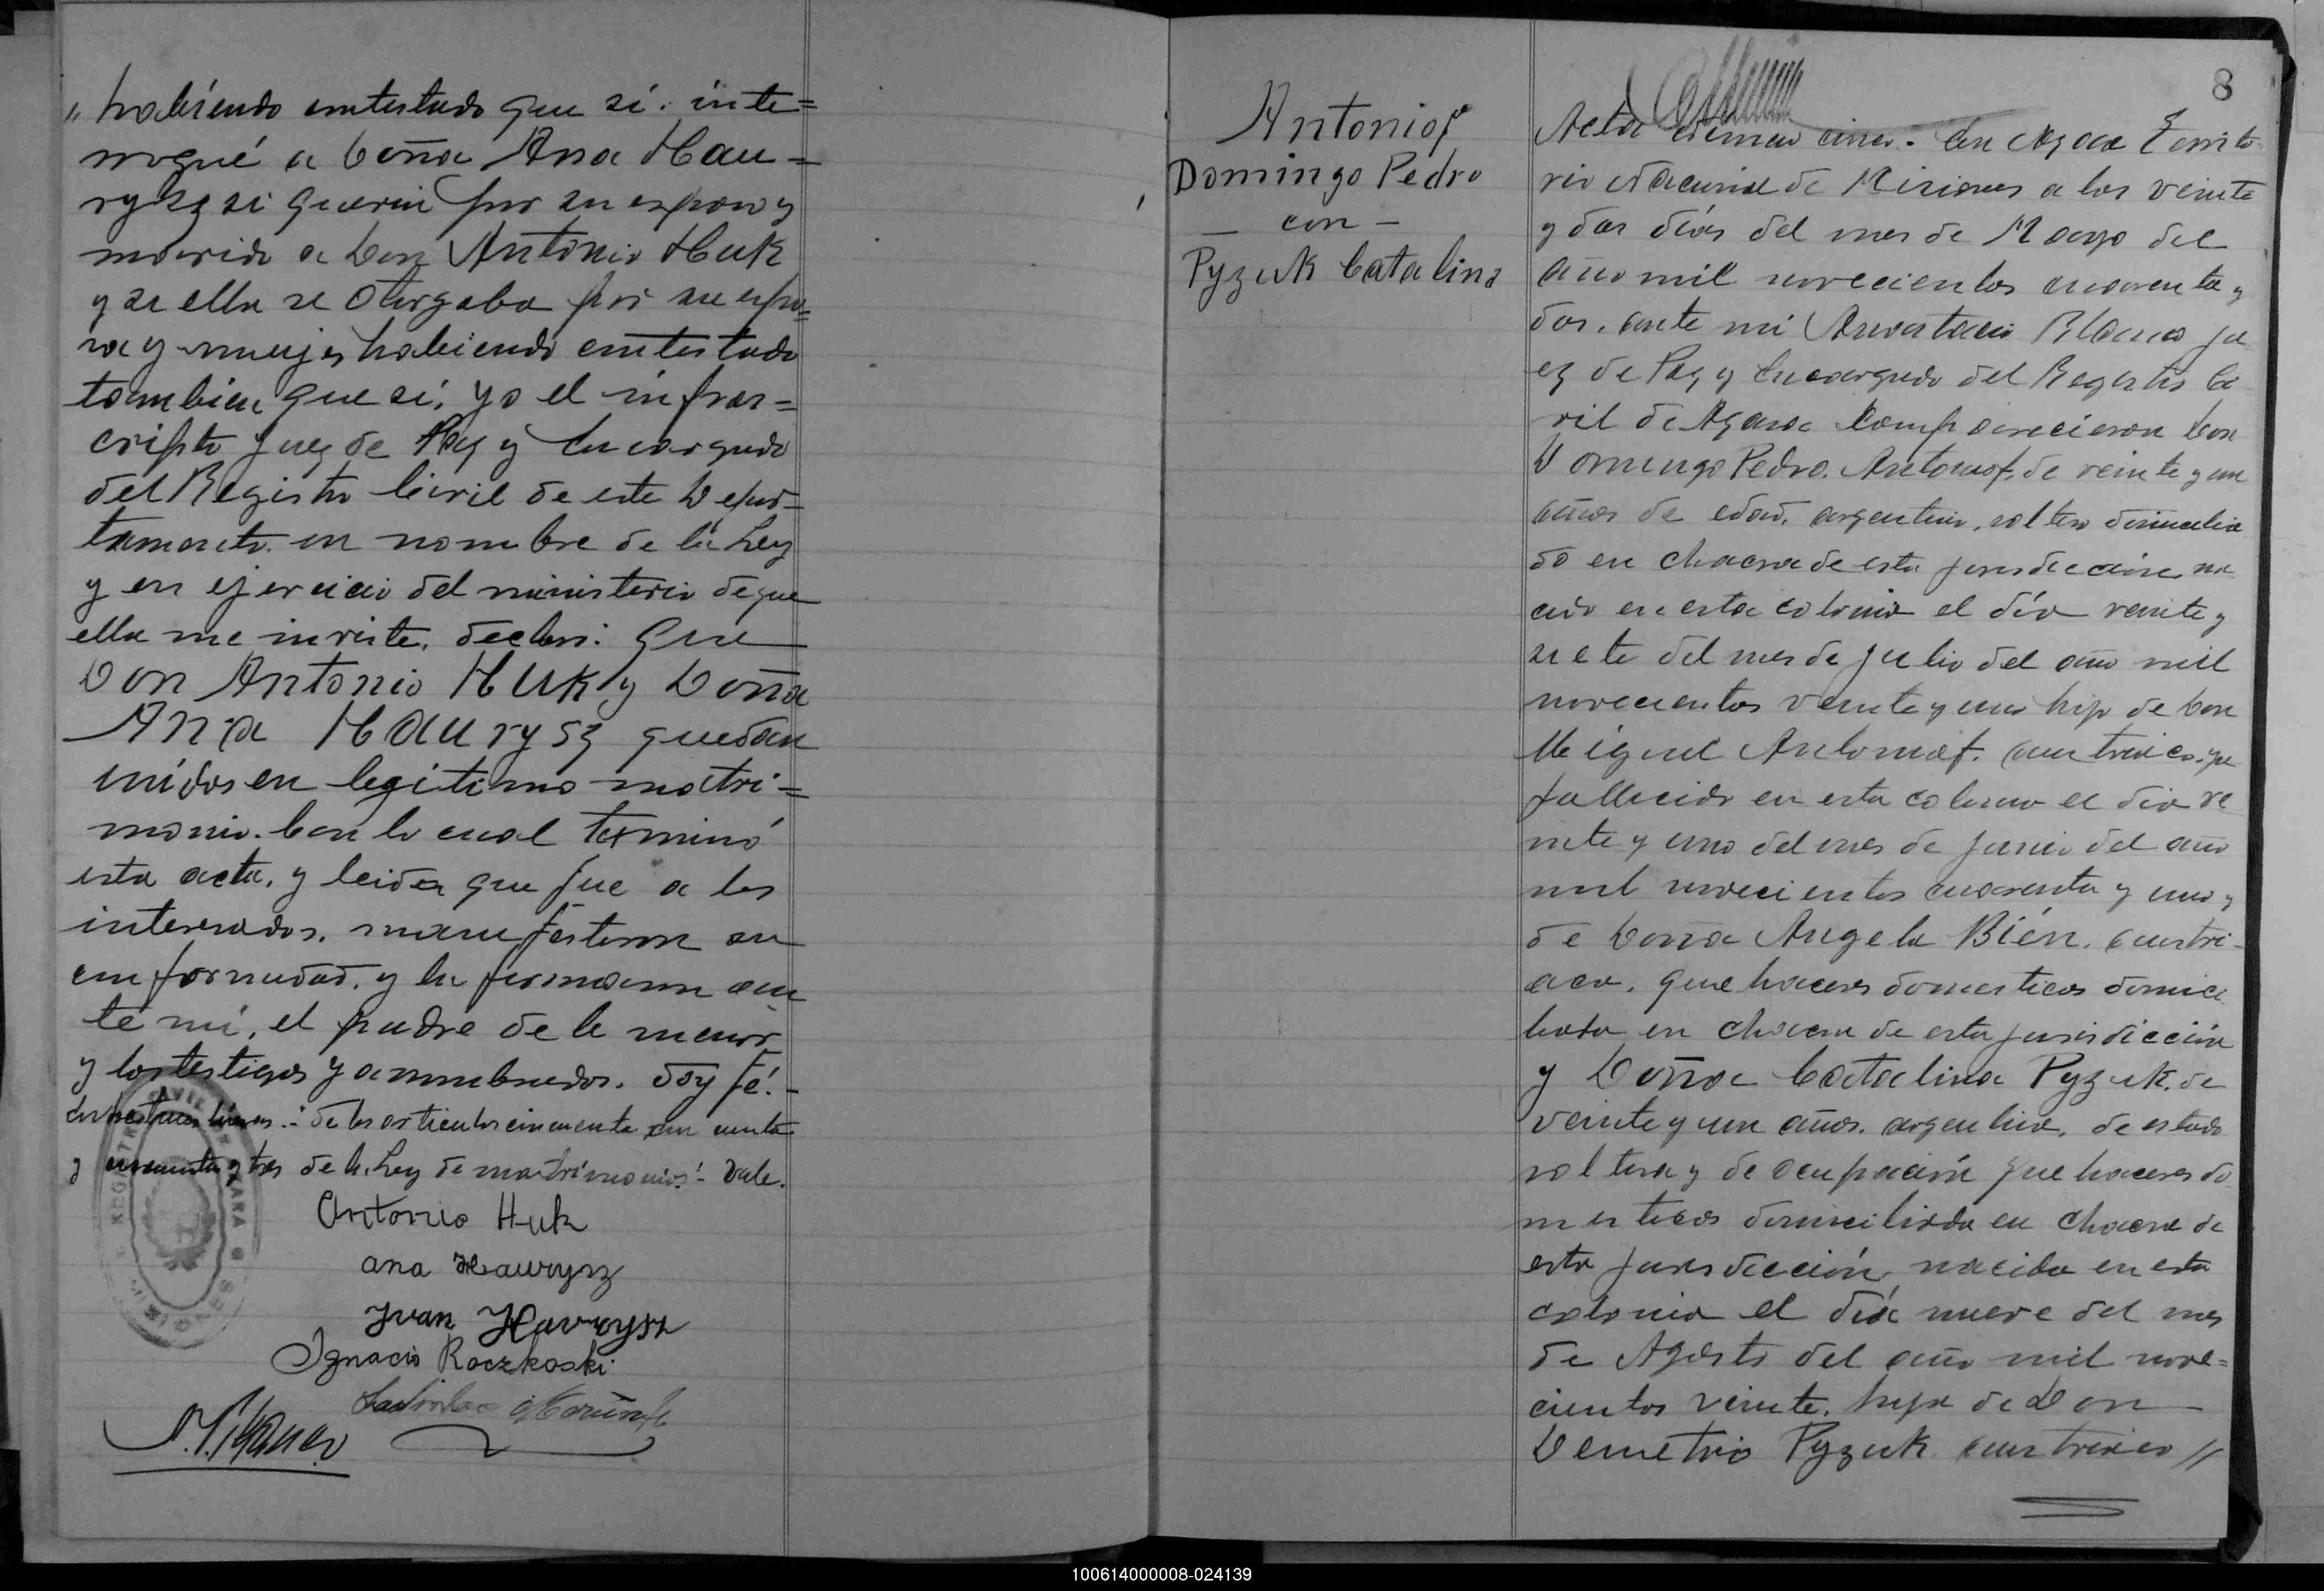 " habiendo contestado que sí: inte=
rrogué a Doña Ana Hau=
rysz si queria por su esposo y
marido a Don Antonio Huk
y si ella se otorgaba por su espo=
sa y mujer habiendo contestado
tambien que sí, yo el infras=
cripto Juez de Paz y Encargado
del Registro Civil de este Depar=
tamento. en nombre de la Ley
y en ejercicio del ministerio de que
ella me inviste, declaro: Que
Don Antonio Huk y Doña
Ana Haurysz quedan
unidos en legitimo matri=
monio. Con lo cual terminó
esta acta, y leida que fue a los
interesados, manifestaron su
conformidad, y la firmaron an
te mí, el padre de la menor
y los testigos ya nombrados. Doy fé.-
de los articulos cincuenta
y tres de la Ley de matrimonios!- Vale.
REGISTRO CIVIL
Antonio Huk
Ana Hawrysz
Yvan Hawrysz
Ignacio Roczkoski
8
Antoniof
Domingo Pedro
— con —
Pyzuk Catalina
Acta número cinco. En Azara Territo
rio Nacional de Misiones a los veinte
y dos días del mes de Mayo del
año mil novecientos cuarenta y
dos. ante mí Ju
ez de Paz y Encargado del Registro Ci
vil de Azara Comparecieron Don
Domingo Pedro Antoniof, de veinte y un
años de edad, argentino, soltero domicilia
do en chacra de esta jurisdiccion, na
cido en esta colonia el día veinte y
siete del mes de Julio del año mil
novecientos veinte y uno hijo de Don
Miguel Antoniof. austriaco, ya
fallecido en esta colonia el dia ve
inte y uno del mes de Junio del año
mil novecientos cuarenta y uno y
de Doña Angela Bién. austri-
aca. quehaceres domesticos domici
liada en chacra de esta jurisdicción
y Doña Catalina Pyzuk. de
veinte y un años. argentina, de estado
soltera y de ocupación quehaceres do
mesticos domiciliada en chacra de
esta jurisdicción, nacida en esta
colonia el día nueve del mes
de Agosto del año mil nove=
cientos veinte. hija de Don
Demetrio Pyzuk austriaco //
100614000008-024139